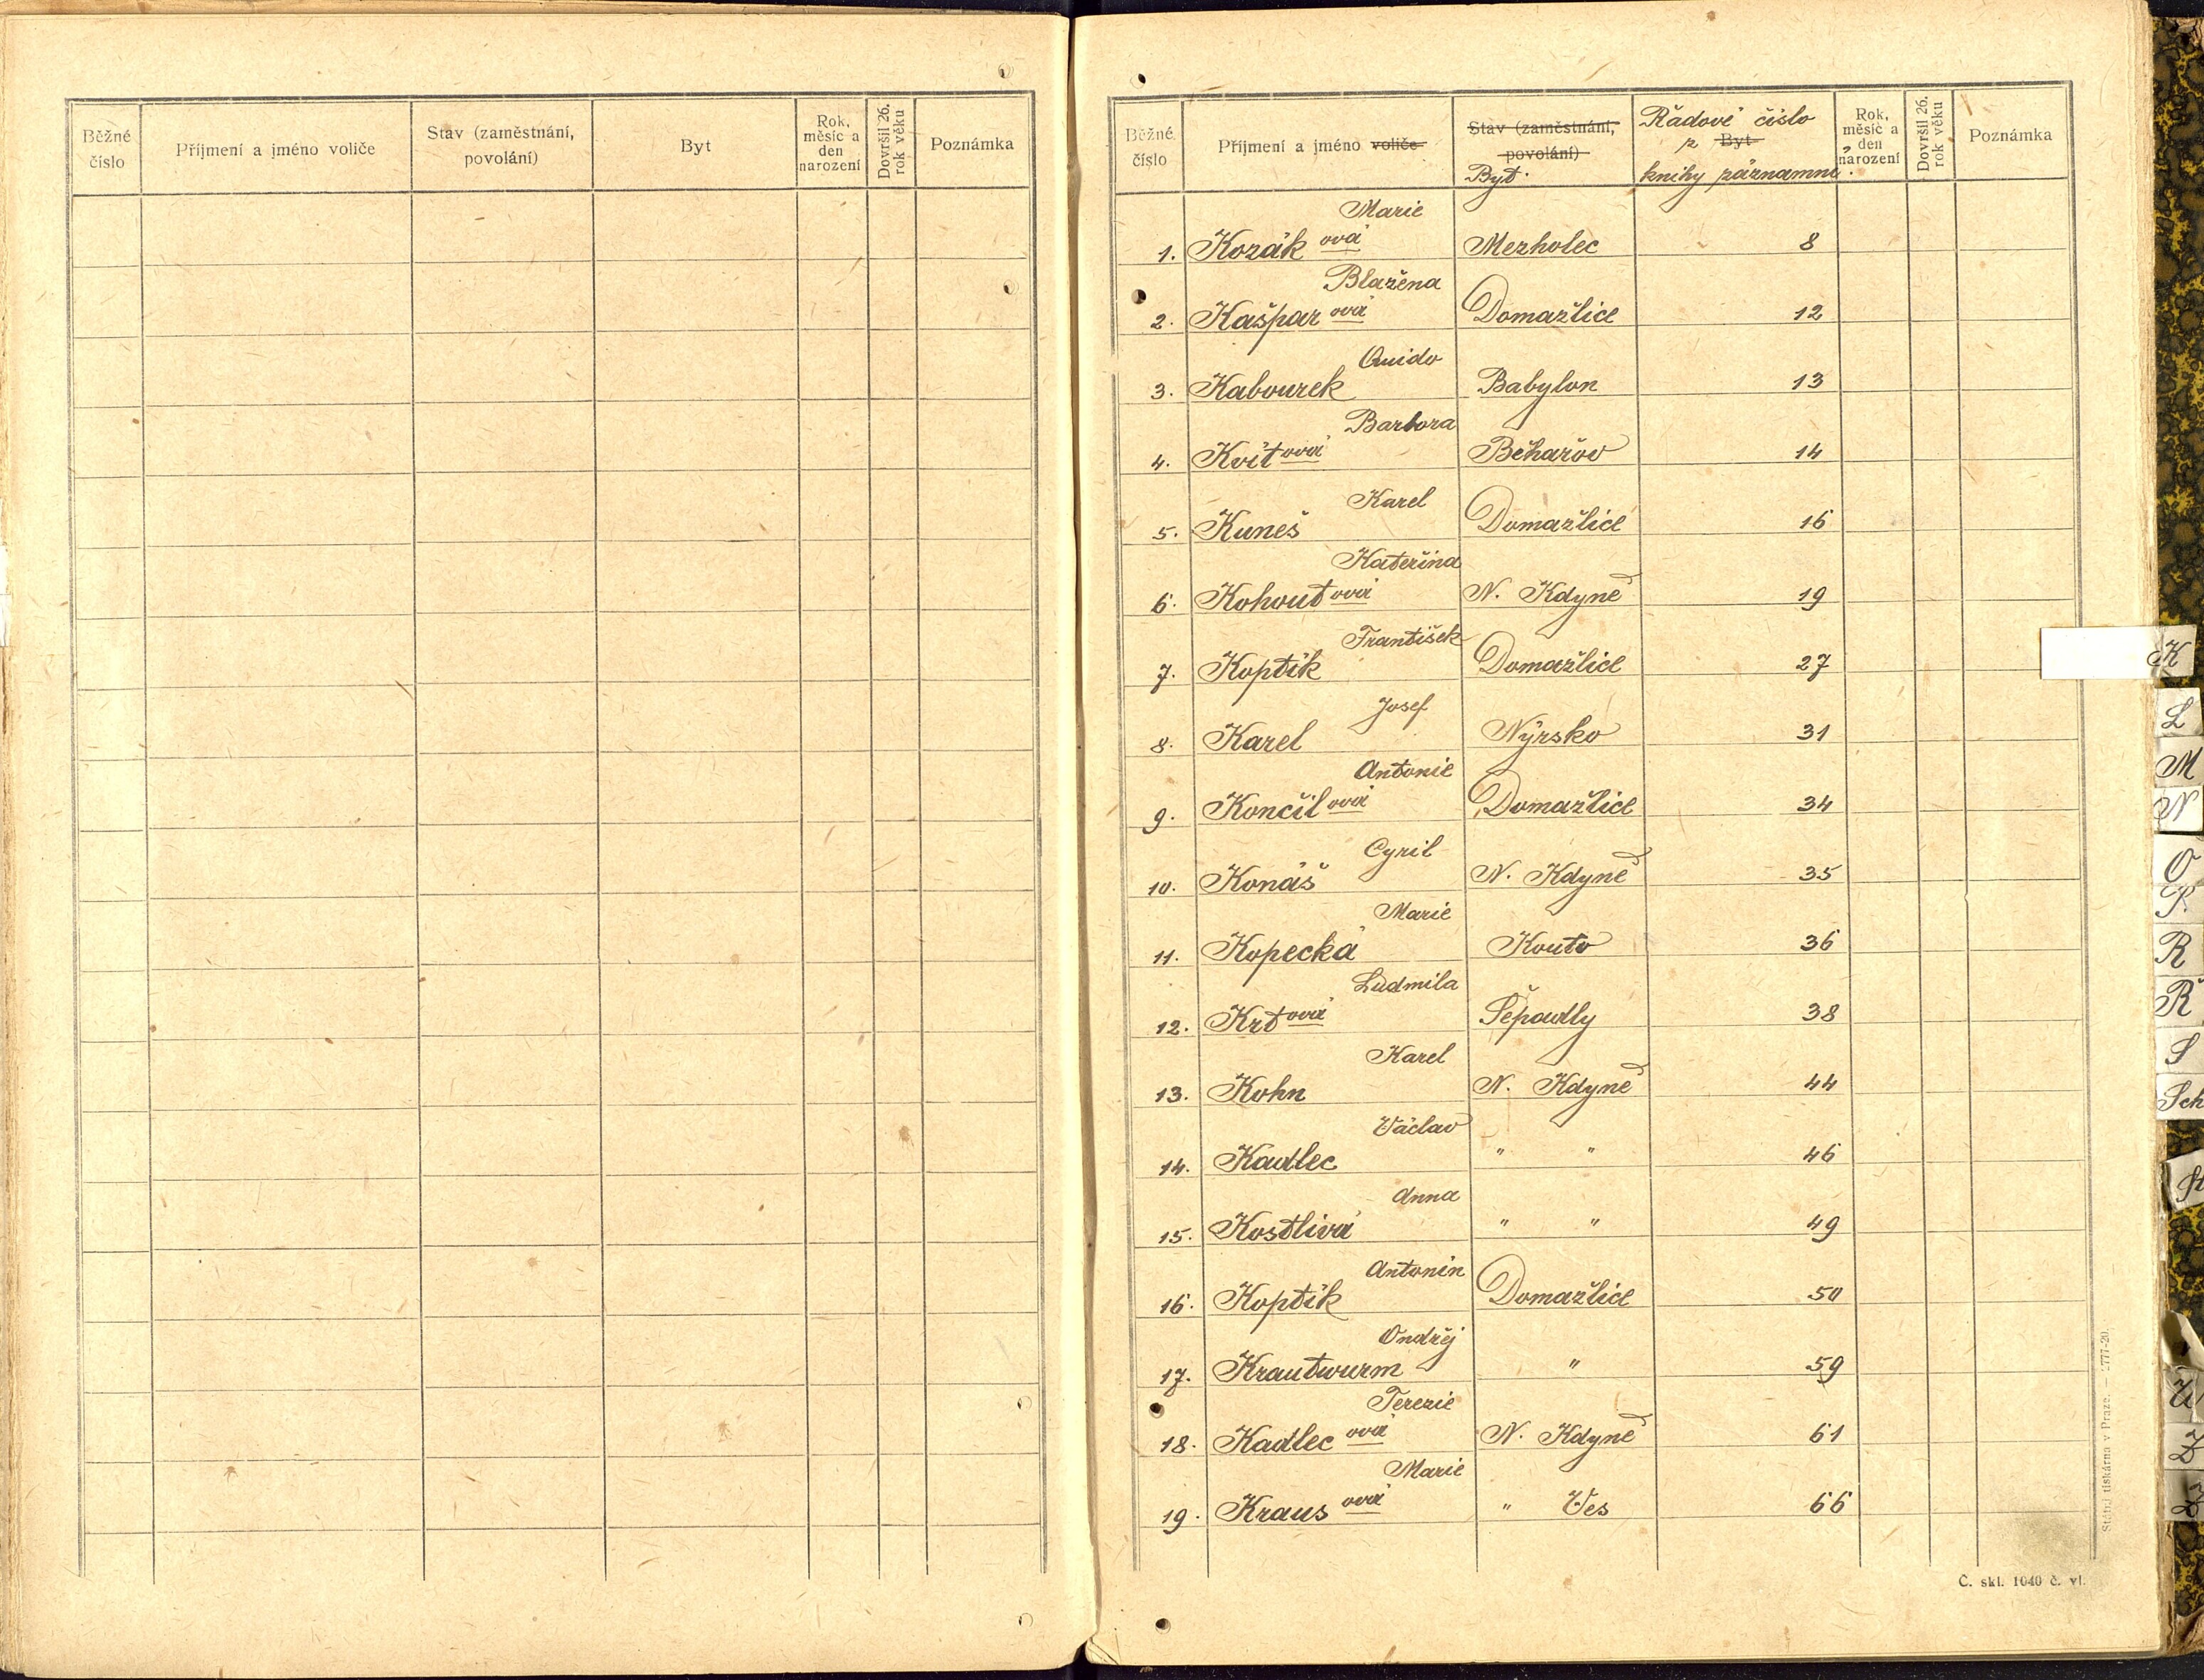 Běžné číslo | Příjmení a jméno voliče | Stav (zaměstnání, povolání) | Byt | Rok, měsíc a den narození | Dovršil 26. rok věku | Poznámka
Běžné číslo | Příjmení a jméno voliče | Stav (zaměstnání, povolání) Byt. | Řadové číslo z Byt knihy záznamní. | Rok, měsíc a den narození | Dovršil 26. rok věku | Poznámka
Marie
1. Kozák ová Mezholec 8
Blažena
2. Kašpar ová Domažlice 12
Quido
3. Kabourek Babylon 13
Barbora
4. Kvít ová Běhařov 14
Karel
5. Kuneš Domažlice 16
Kateřina
6. Kohout ová N. Kdyně 19
František
7. Koptík Domažlice 27
Josef
8. Karel Nýrsko 31
Antonie
9. Končil ová Domažlice 34
Cyril
10. Konáš N. Kdyně 35
Marie
11. Kopecká Kouto 36
Ludmila
12. Krt ová Šepadly 38
Karel
13. Kohn N. Kdyně 44
Václav
14. Kadlec " " 46
Anna
15. Kostlivá " " 49
Antonín
16. Koptík Domažlice 50
Ondřej
17. Krautwurm " 59
Terezie
18. Kadlec ová N. Kdyně 61
Marie
19. Kraus ová " Ves 66
Č. skl. 1040 č. vl.
Státní tiskárna v Praze. —
K
L
M
N
O
P.
R
Ř
S
Sch
Z
Ž